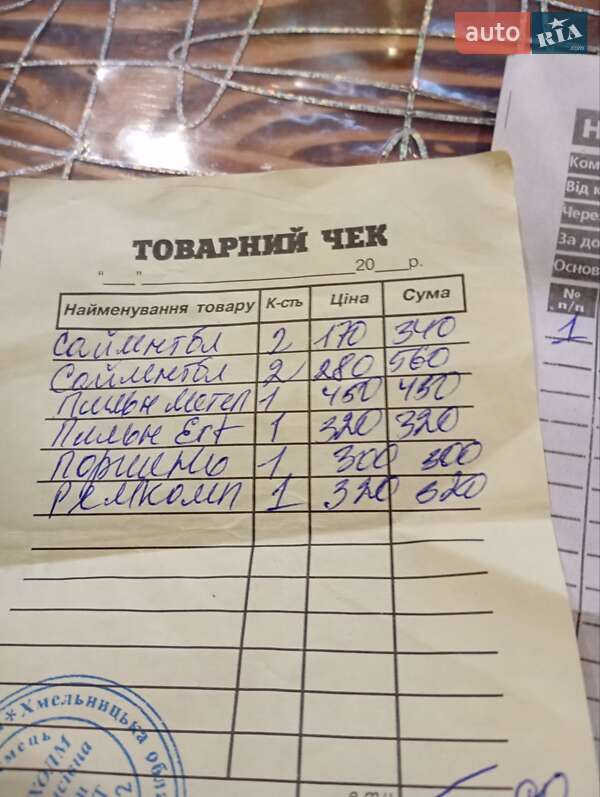 auto RIA.com
ТОВАРНИЙ ЧЕК
"___" 20___р.
Найменування товару К-сть Ціна Сума
Сайлентбл 2 170 340
Сайлентбл 2 280 560
Пильн 1 450 450
Пильн 1 320 320
Поршень 1 300 300
Ремкомп 1 320 620
Ком
Від к
Чере
За до
Основ
№ п/п
1
* Хмельницька обла